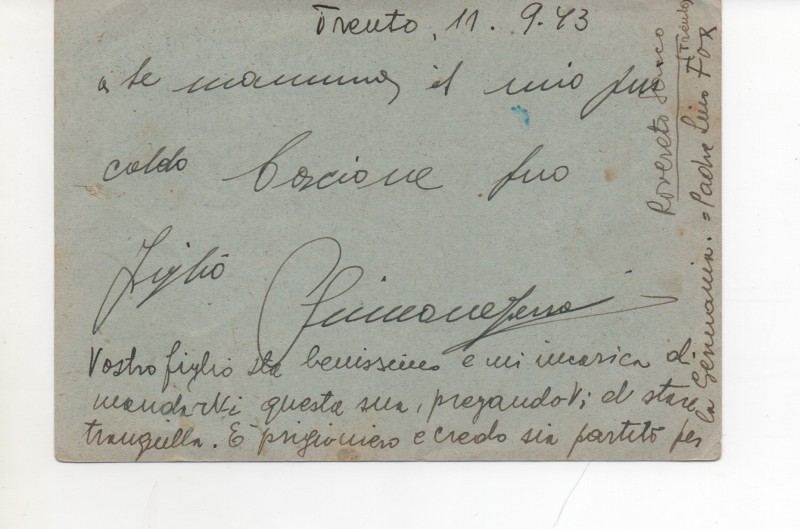 Trento, 11. 9.43
a te mamma il mio piu
caldo bacione tuo
figlio
Vostro figlio sta benissimo e mi incarica di
mandarVi questa sua, pregandoVi di stare
tranquilla. È prigioniero e credo sia partito per
la Germania. = Padre Lino FOR
Rovereto
(Trento)